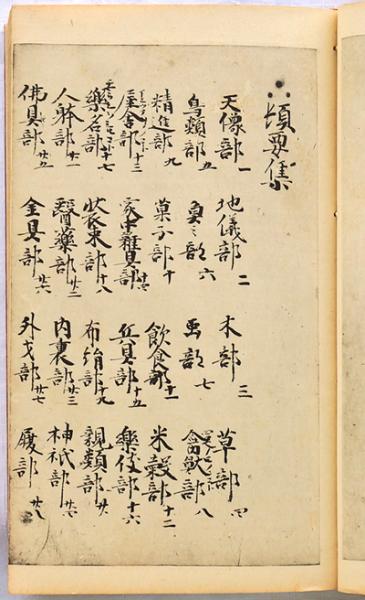 頓要集
天像部一 地儀部二 木部三 草部四
鳥類部五 魚之部六 虫部七 禽獣部八
精進部九 菓子部十 飲食部十一 米穀部十二
屋舎部十三 家中雑具部十四 兵具部十五 樂伎部十六
樂名部十七 装束部十八 布絹部十九 親類部廿
人躰部廿一 醫薬部廿二 内裏部廿三 神祇部廿四
佛具部廿五 金具部廿六 部廿七 履部廿八